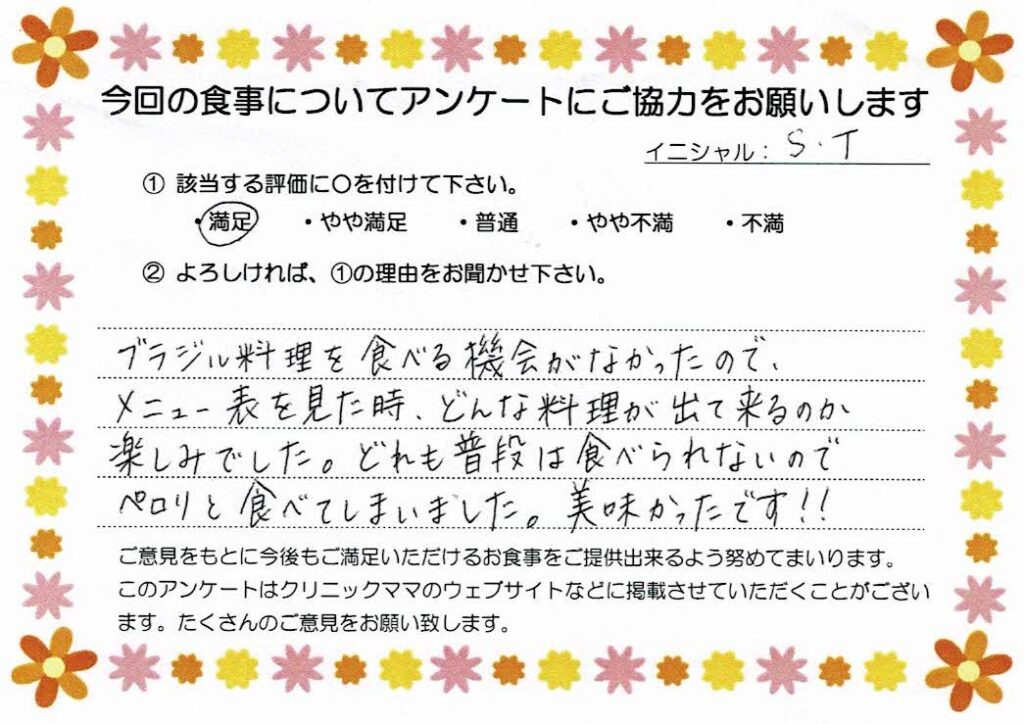 今回の食事についてアンケートにご協力をお願いします
イニシャル： S.T
① 該当する評価に〇を付けて下さい。
・満足 ・やや満足 ・普通 ・やや不満 ・不満
② よろしければ、①の理由をお聞かせ下さい。
ブラジル料理を食べる機会がなかったので、
メニュー表を見た時、どんな料理が出て来るのか
楽しみでした。どれも普段は食べられないので
ペロリと食べてしまいました。美味かったです!!
ご意見をもとに今後もご満足いただけるお食事をご提供出来るよう努めてまいります。
このアンケートはクリニックママのウェブサイトなどに掲載させていただくことがござい
ます。たくさんのご意見をお願い致します。